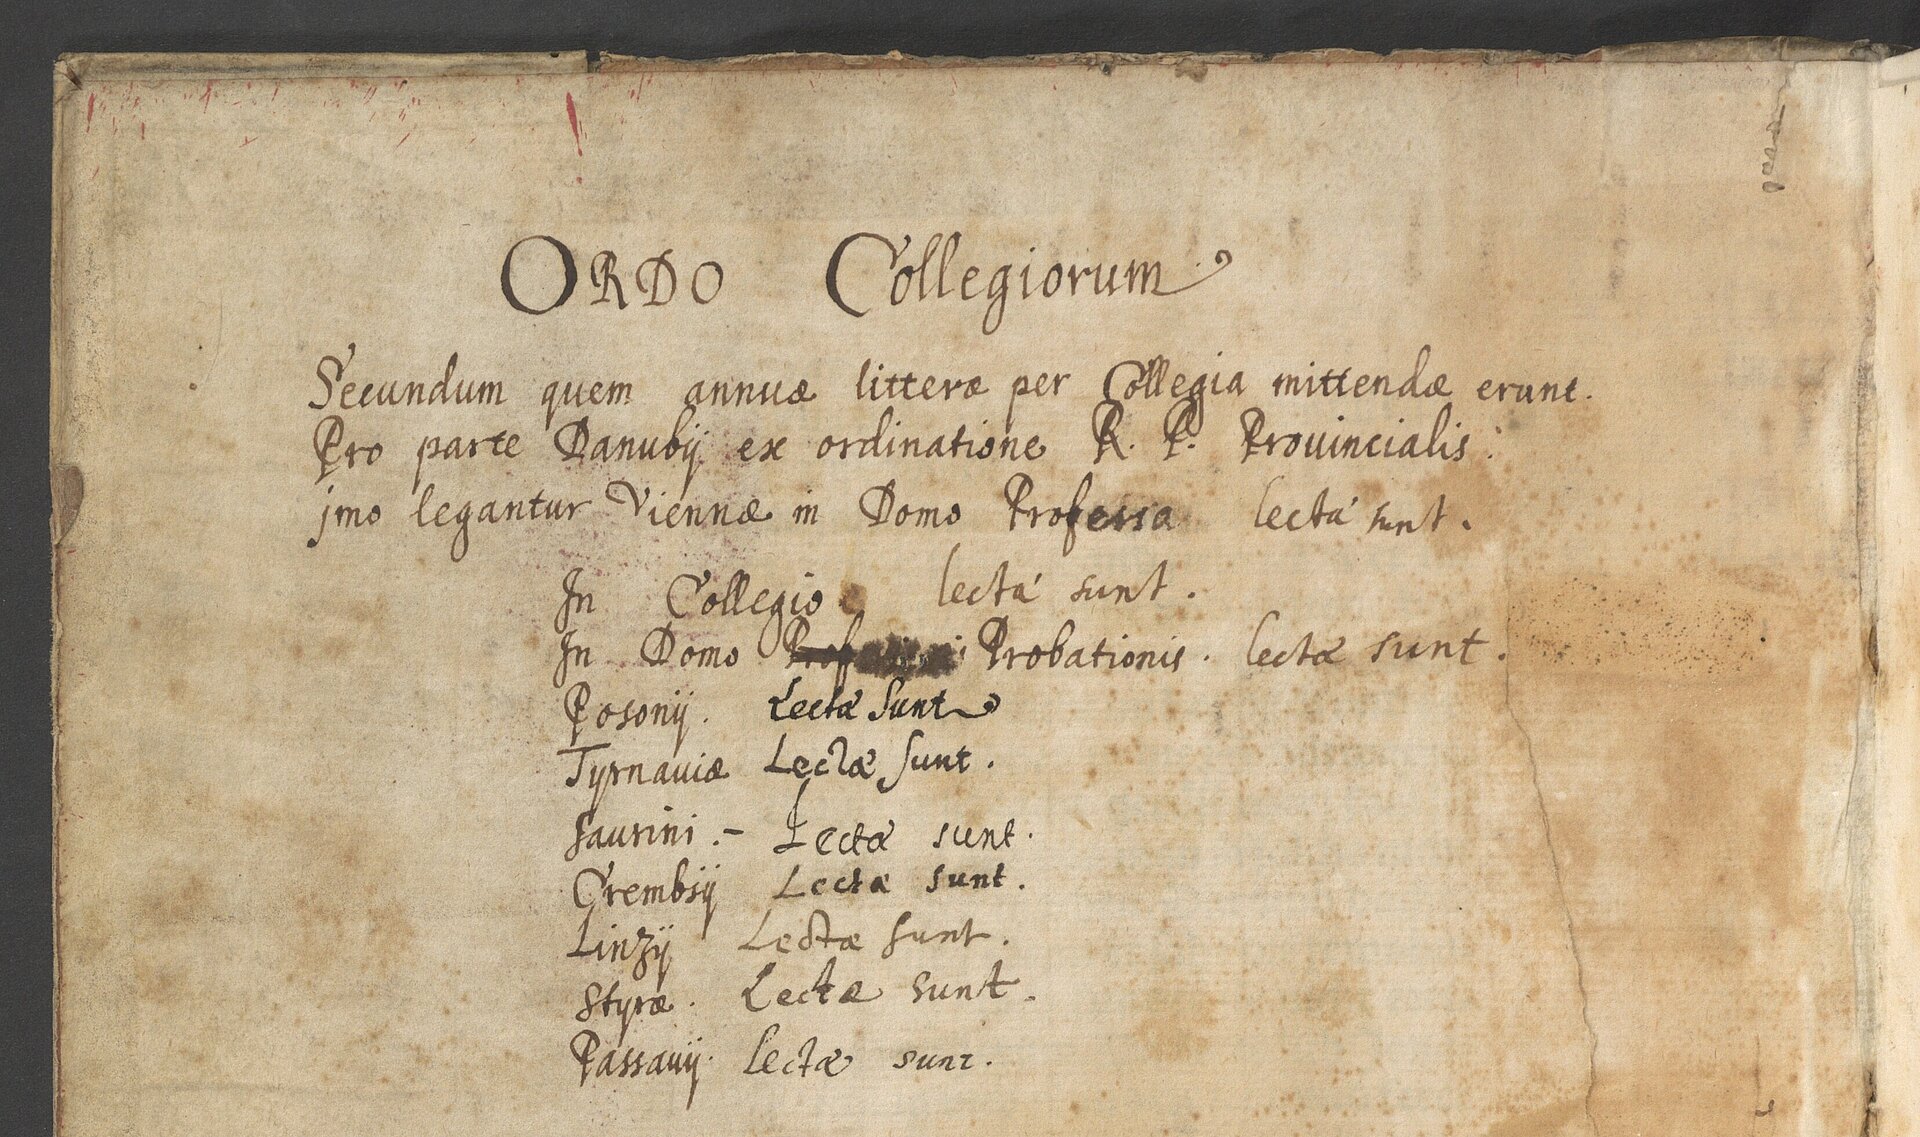 ORDO Collegiorum
Secundum quem annuæ litteræ per Collegia mittendæ erunt.
Pro parte Danubij ex ordinatione R. P. Prouincialis:
jmo legantur Viennæ in Domo Professa lectæ sunt.
In Collegio lectæ sunt.
In Domo Probationis. lectæ sunt.
Posonij. Lectæ Sunt
Tyrnauiæ Lectæ sunt.
Jaurini. - Lectæ sunt.
Crembsij Lectæ sunt.
Linzij Lectæ sunt.
Styræ. Lectæ sunt.
Passauij. lectæ sunt.